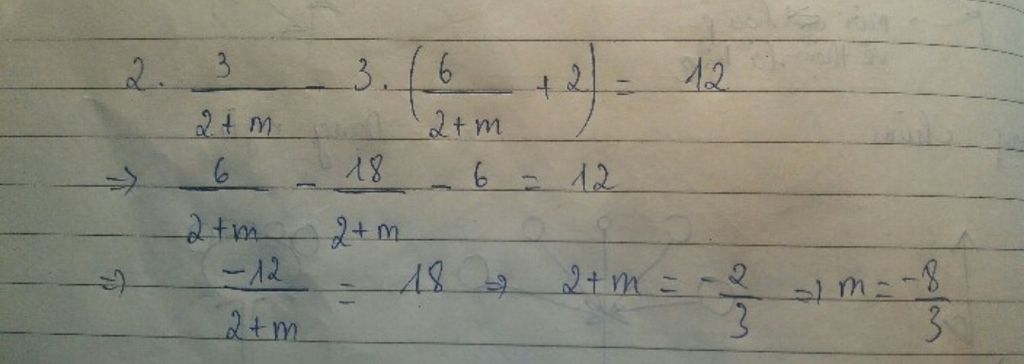 2 . 3/(2+m) - 3 . (6/(2+m) + 2) = 12
=> 6/(2+m) - 18/(2+m) - 6 = 12
=> -12/(2+m) = 18 => 2+m = -2/3 => m = -8/3